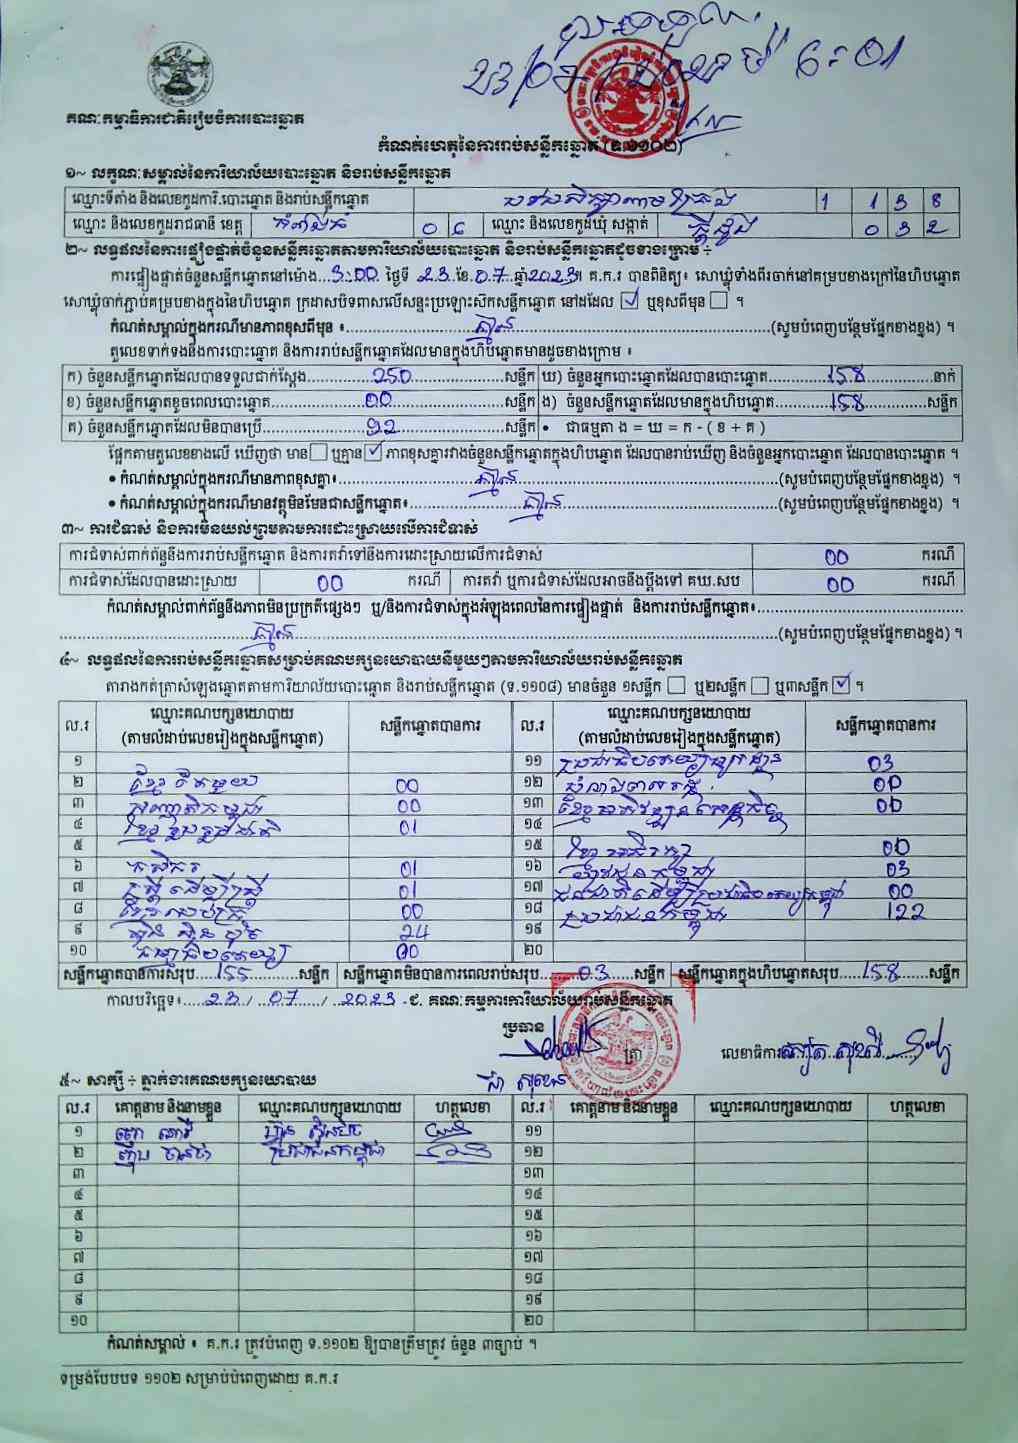 23/07/2023 ម៉ោង 6:01
គណៈកម្មាធិការជាតិរៀបចំការបោះឆ្នោត
កំណត់ហេតុនៃការរាប់សន្លឹកឆ្នោត (ទ.១១០២)
១~ លក្ខណៈសម្គាល់នៃការិយាល័យបោះឆ្នោត និងរាប់សន្លឹកឆ្នោត
ឈ្មោះទីតាំង និងលេខកូដការិ.បោះឆ្នោត និងរាប់សន្លឹកឆ្នោត 1 1 3 8
ឈ្មោះ និងលេខកូដរាជធានី ខេត្ត 0 6 ឈ្មោះ និងលេខកូដឃុំ សង្កាត់ 0 3 2
២~ លទ្ធផលនៃការផ្ទៀងផ្ទាត់ចំនួនសន្លឹកឆ្នោតតាមការិយាល័យបោះឆ្នោត និងរាប់សន្លឹកឆ្នោតដូចខាងក្រោម ៖
ការផ្ទៀងផ្ទាត់ចំនួនសន្លឹកឆ្នោតនៅម៉ោង 3:00 ថ្ងៃទី 23 ខែ 07 ឆ្នាំ 2023។ គ.ក.រ បានពិនិត្យ៖ សោឃ្លុំទាំងពីរចាក់នៅគម្របខាងក្រៅនៃហិបឆ្នោត
សោឃ្លុំចាក់ភ្ជាប់គម្របខាងក្នុងនៃហិបឆ្នោត ក្រដាសបិទពាសលើសន្ទះប្រឡោះស៊កសន្លឹកឆ្នោត នៅដដែល ☑ ឬខុសពីមុន ☐ ។
កំណត់សម្គាល់ក្នុងករណីមានភាពខុសពីមុន ៖ គ្មាន (សូមបំពេញបន្ថែមផ្នែកខាងខ្នង) ។
តួលេខទាក់ទងនឹងការបោះឆ្នោត និងការរាប់សន្លឹកឆ្នោតដែលមានក្នុងហិបឆ្នោតមានដូចខាងក្រោម ៖
ក) ចំនួនសន្លឹកឆ្នោតដែលបានទទួលជាក់ស្តែង 250 សន្លឹក ឃ) ចំនួនអ្នកបោះឆ្នោតដែលបានបោះឆ្នោត 158 នាក់
ខ) ចំនួនសន្លឹកឆ្នោតខូចពេលបោះឆ្នោត 00 សន្លឹក ង) ចំនួនសន្លឹកឆ្នោតដែលមានក្នុងហិបឆ្នោត 158 សន្លឹក
គ) ចំនួនសន្លឹកឆ្នោតដែលមិនបានប្រើ 92 សន្លឹក • ជាធម្មតា ង = ឃ = ក - ( ខ + គ )
ផ្អែកតាមតួលេខខាងលើ ឃើញថា មាន ☐ ឬគ្មាន ☑ ភាពខុសគ្នារវាងចំនួនសន្លឹកឆ្នោតក្នុងហិបឆ្នោត ដែលបានរាប់ឃើញ និងចំនួនអ្នកបោះឆ្នោត ដែលបានបោះឆ្នោត ។
• កំណត់សម្គាល់ក្នុងករណីមានភាពខុសគ្នា៖ គ្មាន (សូមបំពេញបន្ថែមផ្នែកខាងខ្នង) ។
• កំណត់សម្គាល់ក្នុងករណីមានវត្ថុមិនមែនជាសន្លឹកឆ្នោត៖ គ្មាន (សូមបំពេញបន្ថែមផ្នែកខាងខ្នង) ។
៣~ ការជំទាស់ និងការមិនយល់ព្រមតាមការដោះស្រាយលើការជំទាស់
ការជំទាស់ពាក់ព័ន្ធនឹងការរាប់សន្លឹកឆ្នោត និងការតវ៉ាទៅនឹងការដោះស្រាយលើការជំទាស់ 00 ករណី
ការជំទាស់ដែលបានដោះស្រាយ 00 ករណី ការតវ៉ា ឬការជំទាស់ដែលអាចនឹងប្តឹងទៅ គឃ.សប 00 ករណី
កំណត់សម្គាល់ពាក់ព័ន្ធនឹងភាពមិនប្រក្រតីផ្សេងៗ ឬ/និងការជំទាស់ក្នុងអំឡុងពេលនៃការផ្ទៀងផ្ទាត់ និងការរាប់សន្លឹកឆ្នោត៖
គ្មាន (សូមបំពេញបន្ថែមផ្នែកខាងខ្នង) ។
៤~ លទ្ធផលនៃការរាប់សន្លឹកឆ្នោតសម្រាប់គណបក្សនយោបាយនីមួយៗតាមការិយាល័យរាប់សន្លឹកឆ្នោត
តារាងកត់ត្រាសំឡេងឆ្នោតតាមការិយាល័យបោះឆ្នោត និងរាប់សន្លឹកឆ្នោត (ទ.១១០៨) មានចំនួន ១សន្លឹក ☐ ឬ២សន្លឹក ☐ ឬ៣សន្លឹក ☑ ។
ល.រ ឈ្មោះគណបក្សនយោបាយ (តាមលំដាប់លេខរៀងក្នុងសន្លឹកឆ្នោត) សន្លឹកឆ្នោតបានការ ល.រ ឈ្មោះគណបក្សនយោបាយ (តាមលំដាប់លេខរៀងក្នុងសន្លឹកឆ្នោត) សន្លឹកឆ្នោតបានការ
១ ១១ 03
២ ខ្មែរតែមួយ 00 ១២ 00
៣ 00 ១៣ 00
៤ 01 ១៤
៥ ១៥ 00
៦ កសិករ 01 ១៦ 03
៧ ស្ត្រីដើម្បីស្ត្រី 01 ១៧ 00
៨ 00 ១៨ ប្រជាជនកម្ពុជា 122
៩ 24 ១៩
១០ 00 ២០
សន្លឹកឆ្នោតបានការសរុប 155 សន្លឹក សន្លឹកឆ្នោតមិនបានការពេលរាប់សរុប 03 សន្លឹក សន្លឹកឆ្នោតក្នុងហិបឆ្នោតសរុប 158 សន្លឹក
កាលបរិច្ឆេទ៖ 23 / 07 / 2023 - ៩. គណៈកម្មការការិយាល័យរាប់សន្លឹកឆ្នោត
ប្រធាន ត្រា លេខាធិការ
៥~ សាក្សី ៖ ភ្នាក់ងារគណបក្សនយោបាយ
ល.រ គោត្តនាម និងនាមខ្លួន ឈ្មោះគណបក្សនយោបាយ ហត្ថលេខា ល.រ គោត្តនាម និងនាមខ្លួន ឈ្មោះគណបក្សនយោបាយ ហត្ថលេខា
១ ១១
២ ប្រជាជនកម្ពុជា ១២
៣ ១៣
៤ ១៤
៥ ១៥
៦ ១៦
៧ ១៧
៨ ១៨
៩ ១៩
១០ ២០
កំណត់សម្គាល់ ៖ គ.ក.រ ត្រូវបំពេញ ទ.១១០២ ឱ្យបានត្រឹមត្រូវ ចំនួន ៣ច្បាប់ ។
ទម្រង់បែបបទ ១១០២ សម្រាប់បំពេញដោយ គ.ក.រ